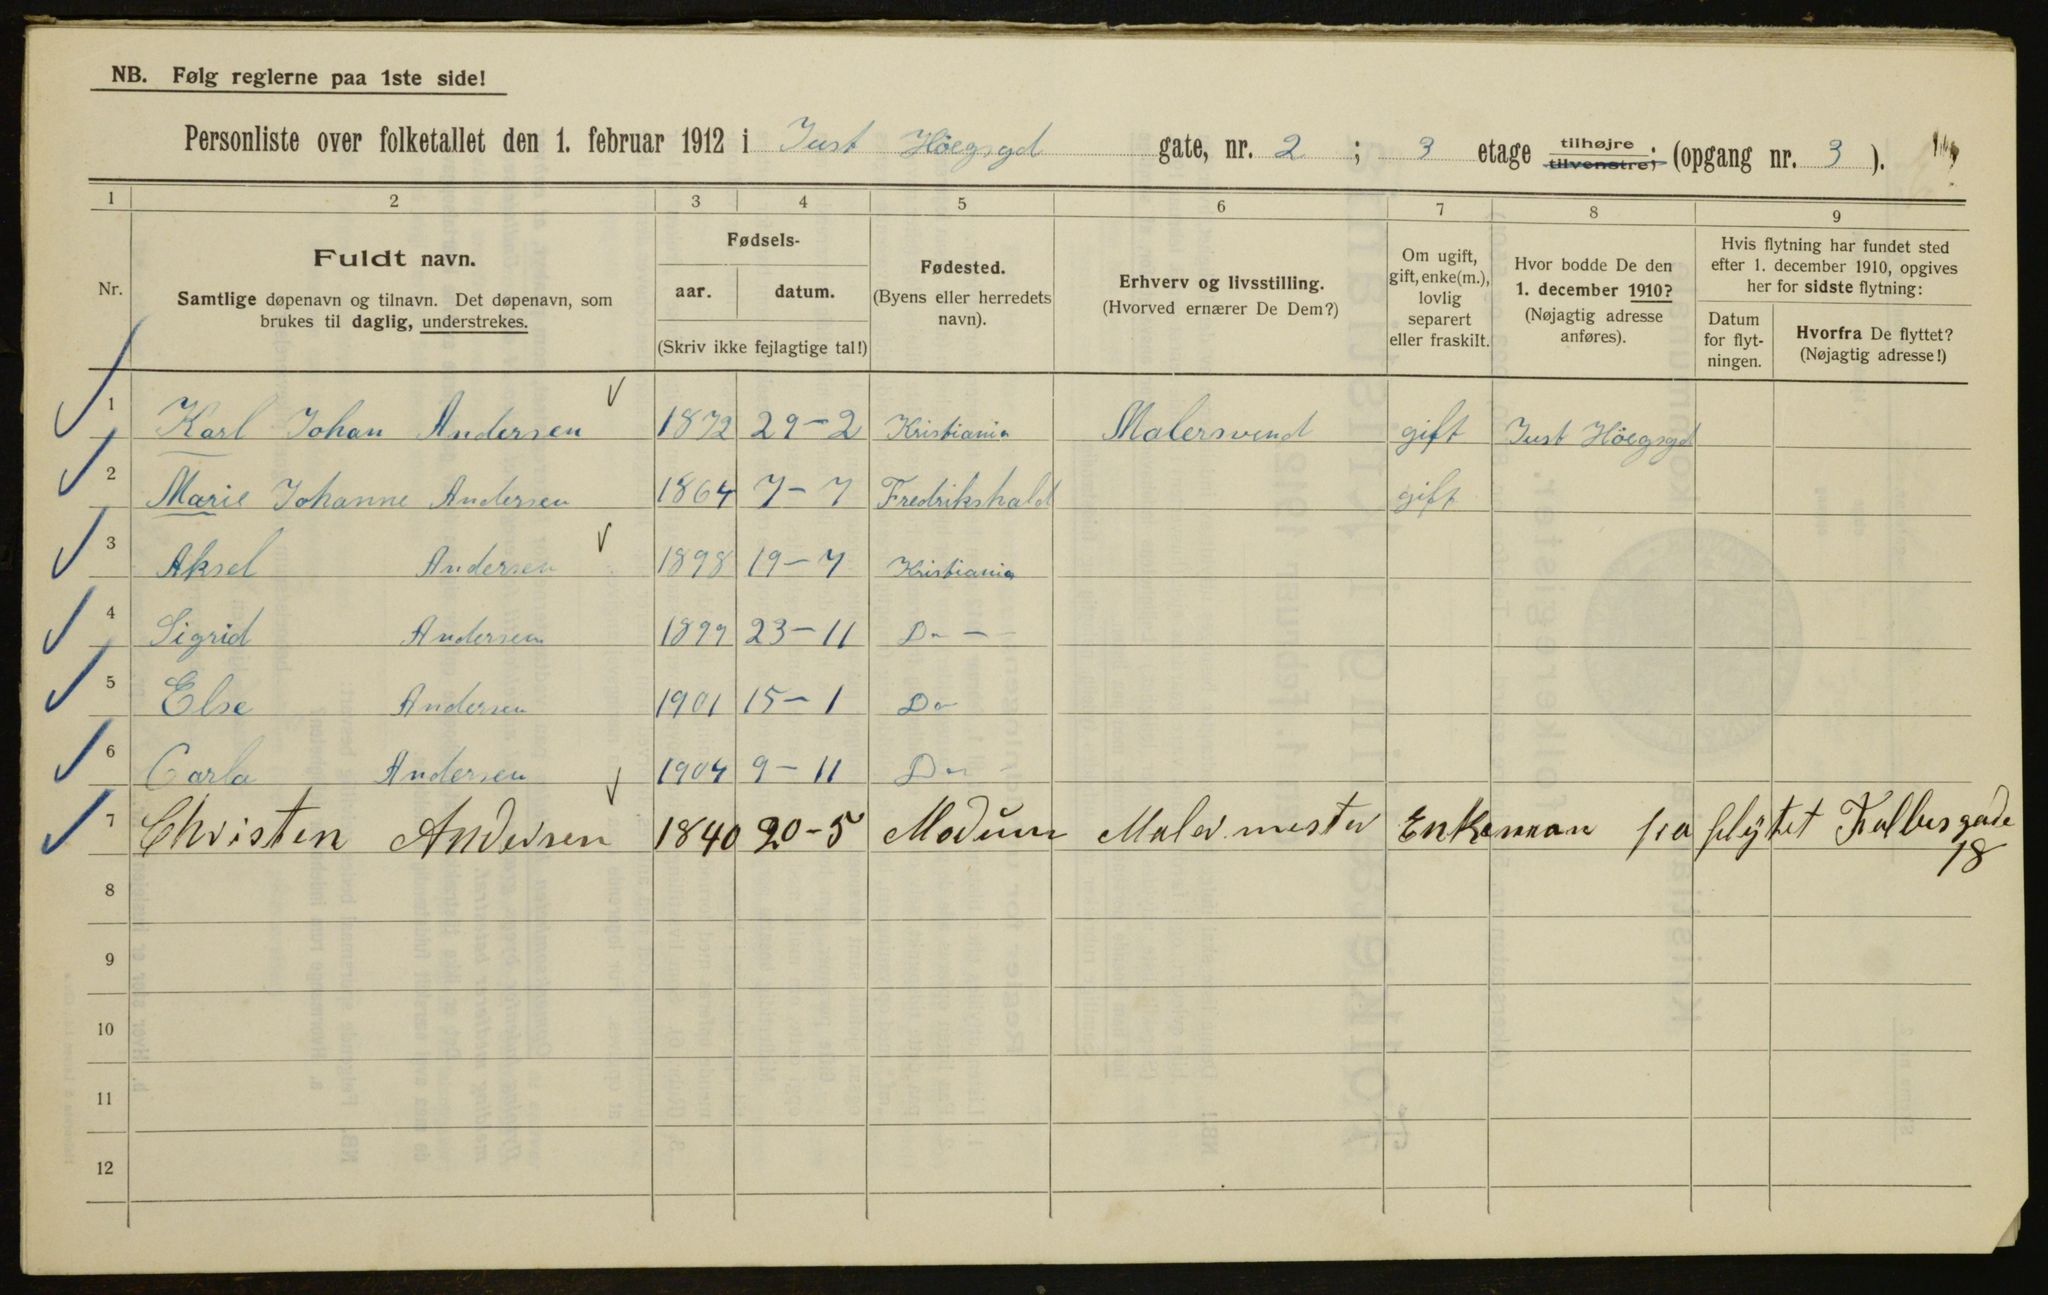 NB. Følg reglerne paa 1ste side!
Personliste over folketallet den 1. februar 1912 i Just Höegsgd gate, nr. 2 ; 3 etage tilhøjre tilvenstre; (opgang nr. 3 ).
1 2 3 4 5 6 7 8 9
Nr.
Fuldt navn.
Samtlige døpenavn og tilnavn. Det døpenavn, som
brukes til daglig, understrekes.
Fødsels-
aar. datum.
(Skriv ikke fejlagtige tal!)
Fødested.
(Byens eller herredets
navn).
Erhverv og livsstilling.
(Hvorved ernærer De Dem?)
Om ugift,
gift, enke(m.),
lovlig
separert
eller fraskilt.
Hvor bodde De den
1. december 1910?
(Nøjagtig adresse
anføres).
Hvis flytning har fundet sted
efter 1. december 1910, opgives
her for sidste flytning:
Datum
for flyt-
ningen.
Hvorfra De flyttet?
(Nøjagtig adresse!)
1 Karl Johan Andersen 1872 29-2 Kristiania Malersvend gift Just Höegsgd
2 Marie Johanne Andersen 1864 7-7 Fredrikshald gift
3 Aksel Andersen 1898 19-7 Kristiania
4 Sigrid Andersen 1899 23-11 Do -
5 Else Andersen 1901 15-1 Do
6 Carla Andersen 1904 9-11 Do -
7 Christen Andersen 1840 20-5 Modum Maler mester Enkeman fra flÿtet
18
8
9
10
11
12